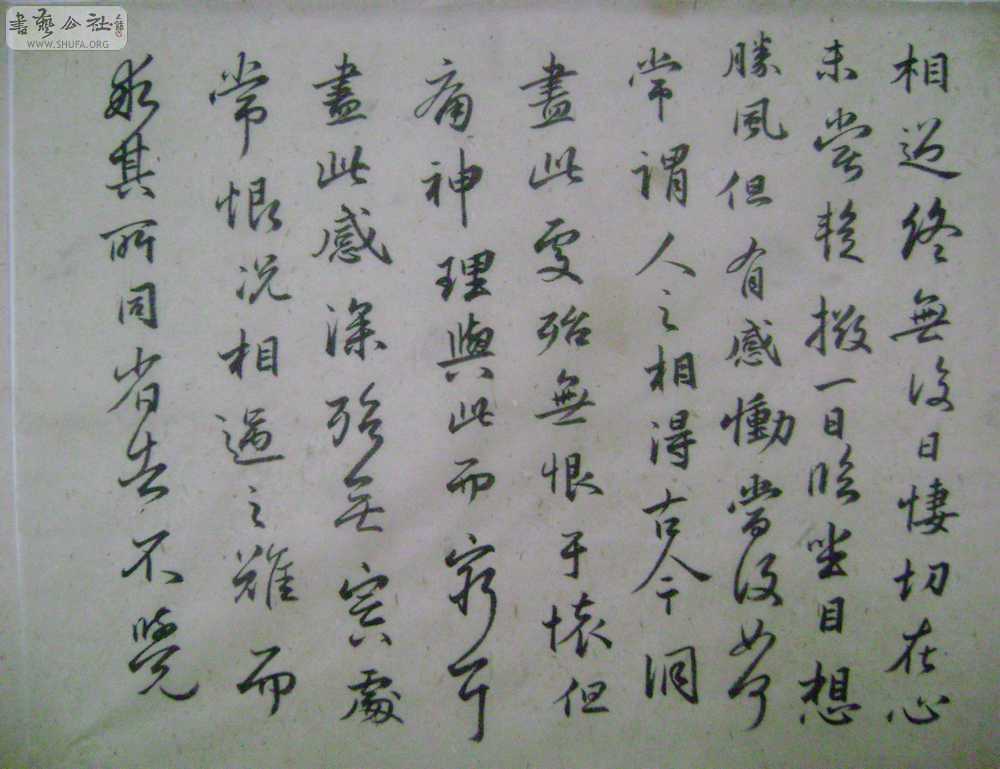 書藝公社
WWW.SHUFA.ORG
相過終無復日悽切在心
未嘗暫掇一日臨坐目想
勝風但有感慟當復如何
常謂人之相得古今洞
盡此處殆無恨于懷但
痛神理與此而窮耳
盡此感深殆無冥處
常恨況相遇之難而
乖其所同省告不覺